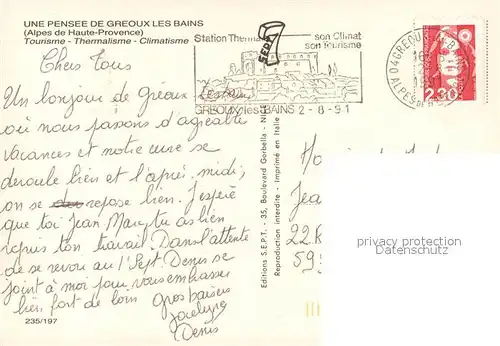 UNE PENSEE DE GREOUX LES BAINS
(Alpes de Haute-Provence)
Tourisme - Thermalisme - Climatisme
Station Therm
son Climat
son Tourisme
7 SEPT
GREOUX les BAINS 2 - 8 - 91
04 GREOUX BAINS
ALPES DE
2,30
Chers Tous
Un bonjour de Greoux les bains
où nous passons d'agréable
vacances et notre cure se
deroule bien et l'après midi,
on se repose bien. J'espère
que toi Jean Marc, tu as bien
repris ton travail. Dans l'attente
de se revoir au 1er Sept. Denis se
joint à moi pour vous embrasser
bien fort de loin Gros baisers
Jocelyne
Denis
235/197
Editions S.E.P.T. - 35, Boulevard Gorbella - Nice
Reproduction interdite - Imprimé en Italie
Jea
22 R
59
privacy protection
personal data